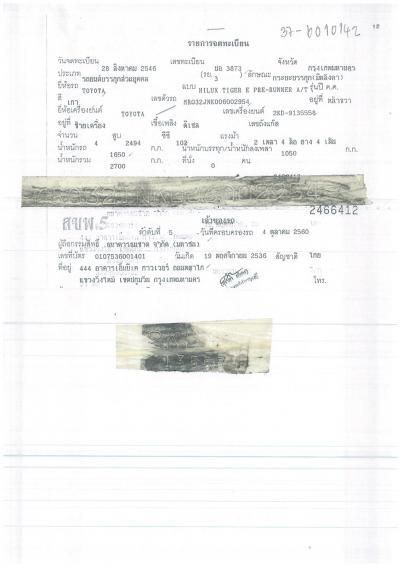 37-6010142
12
รายการจดทะเบียน
วันจดทะเบียน 28 สิงหาคม 2546 เลขทะเบียน ปอ 3873 จังหวัด กรุงเทพมหานคร
ประเภท รถยนต์บรรทุกส่วนบุคคล (รย. 3 ) ลักษณะ กระบะบรรทุก(มีฝาปิด)
ยี่ห้อรถ TOYOTA แบบ HILUX TIGER E PRE-RUNNER A/T รุ่นปี ค.ศ.
สี เทา เลขตัวรถ MR032JNK006002954 อยู่ที่ หน้าขวา
ยี่ห้อเครื่องยนต์ TOYOTA เลขเครื่องยนต์ 2KD-9135558
อยู่ที่ ซ้ายเครื่อง เชื้อเพลิง ดีเซล เลขถังแก๊ส
จำนวน 4 สูบ 2494 ซีซี 102 แรงม้า 2 เพลา 4 ล้อ ยาง 4 เส้น
น้ำหนักรถ 1650 ก.ก. น้ำหนักบรรทุก/น้ำหนักลงเพลา 1050 ก.ก.
น้ำหนักรวม 2700 ก.ก. ที่นั่ง 0 คน
2466412
2466412
สขพ.5 เจ้าของรถ
ลำดับที่ 5 วันที่ครอบครองรถ 4 ตุลาคม 2560
ผู้ถือกรรมสิทธิ์ ธนาคารธนชาต จำกัด (มหาชน)
เลขที่บัตร 0107536001401 วันเกิด 19 พฤศจิกายน 2536 สัญชาติ ไทย
ที่อยู่ 444 อาคารเอ็มบีเค ทาวเวอร์ ถนนพญาไท
แขวงวังใหม่ เขตปทุมวัน กรุงเทพมหานคร โทร.